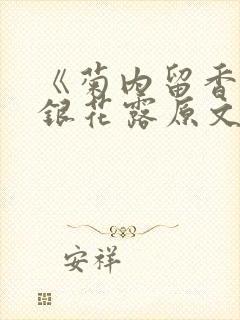 《菊内留香
銀花露原文
安祥